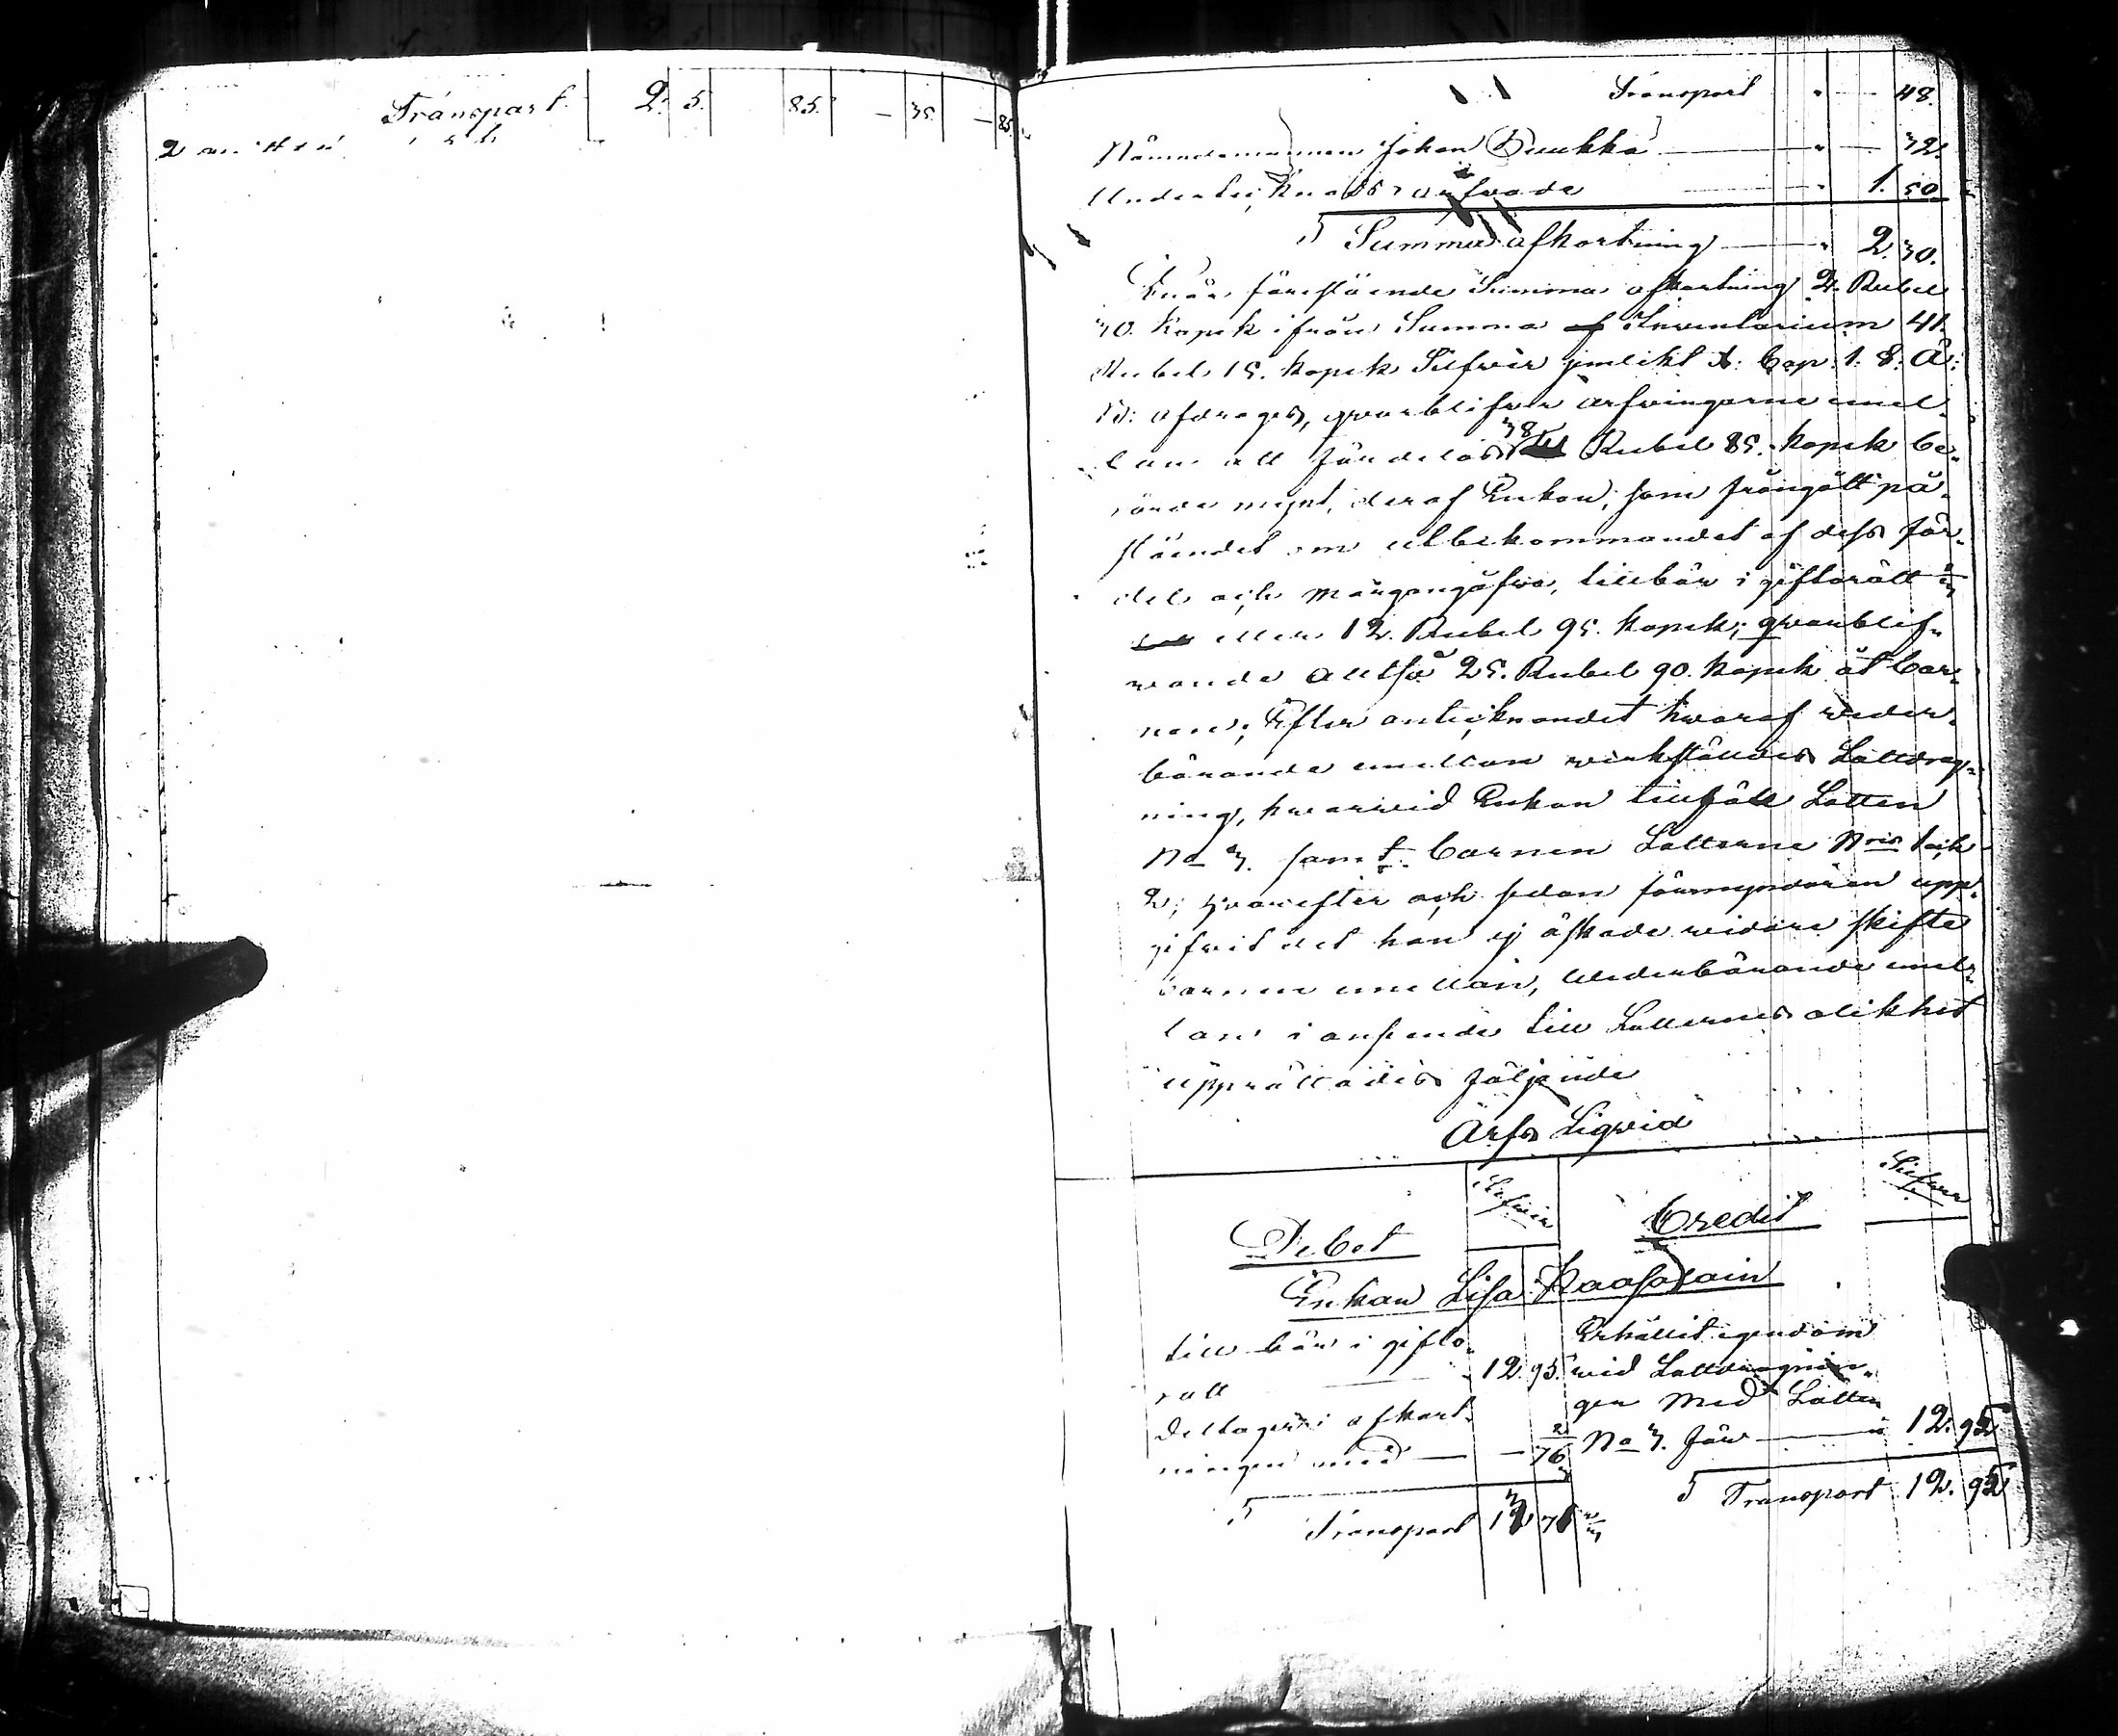 Transport 2. 5. 85. — 35. — 85.
2
Transport " — 48.
Nämndemannen Johan Buukka — " — 32.
Undertecknads arfvode — " 1. 50.
S Summa afkortning — " 2. 30.
Enär förestående Summa afkortning 2. Rubel
30. Kopek ifrån Summa Inventarium 41.
Rubel 15. kopek Silfver jemlikt Cap. 1. §. Ä:
B: afdrages, qvarblifver arfvingarne emel-
lan att fördelas 38 Rubel 85. kopek be-
rörde mynt, deraf Enkan, som frångått på-
ståendet om utbekommandet af dess för-
del och morgongåfva, tillbör i giftorätt
eller 12. Rubel 95. kopek; qvarblif-
vande alltså 25. Rubel 90. kopek åt bar-
nen; Efter antecknandet hvaraf veder-
börande emellan verkställdes Lottdrag-
ning, hvarvid Enkan tillföll Lotten
No 3. samt barnen Lotterne N:ris 1 och
2; hvarefter och sedan förmyndaren upp-
gifvit det han ej åskade vidare skifte
barnen emellan, Vederbörande emel-
lan i anseende till Lotternes olikhet
upprättades följande
Arfs Liqvid
Debet Silfver Credit Silfver
Enkan Lisa Kaasalain
till bör i gifto-
rätt — 12. 95.
deltager i afkort-
ningen med — — 76 2/3
S Transport 13 71 2/3
Erhållit egendom
vid Lottdragnin-
gen med Lotten
No 3. för — " 12. 95
S Transport 12. 95